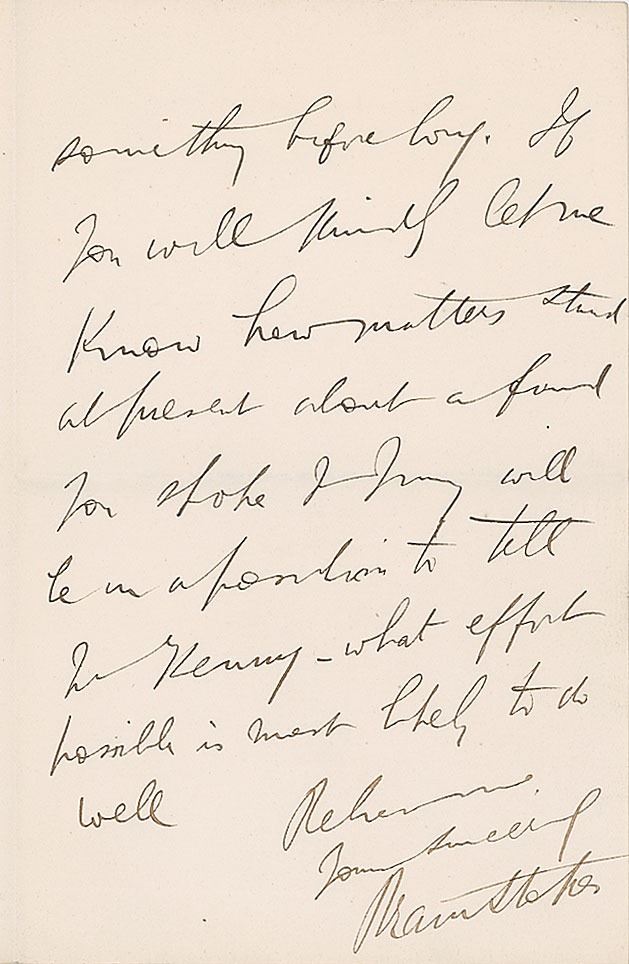 something before long. If
you will kindly let me
know how matters stand
at present about a fund
you spoke of Irving will
be in a position to tell
Mr Kenny – what effort
possible is most likely to do
well
Believe me
Yours sincerely
Bram Stoker